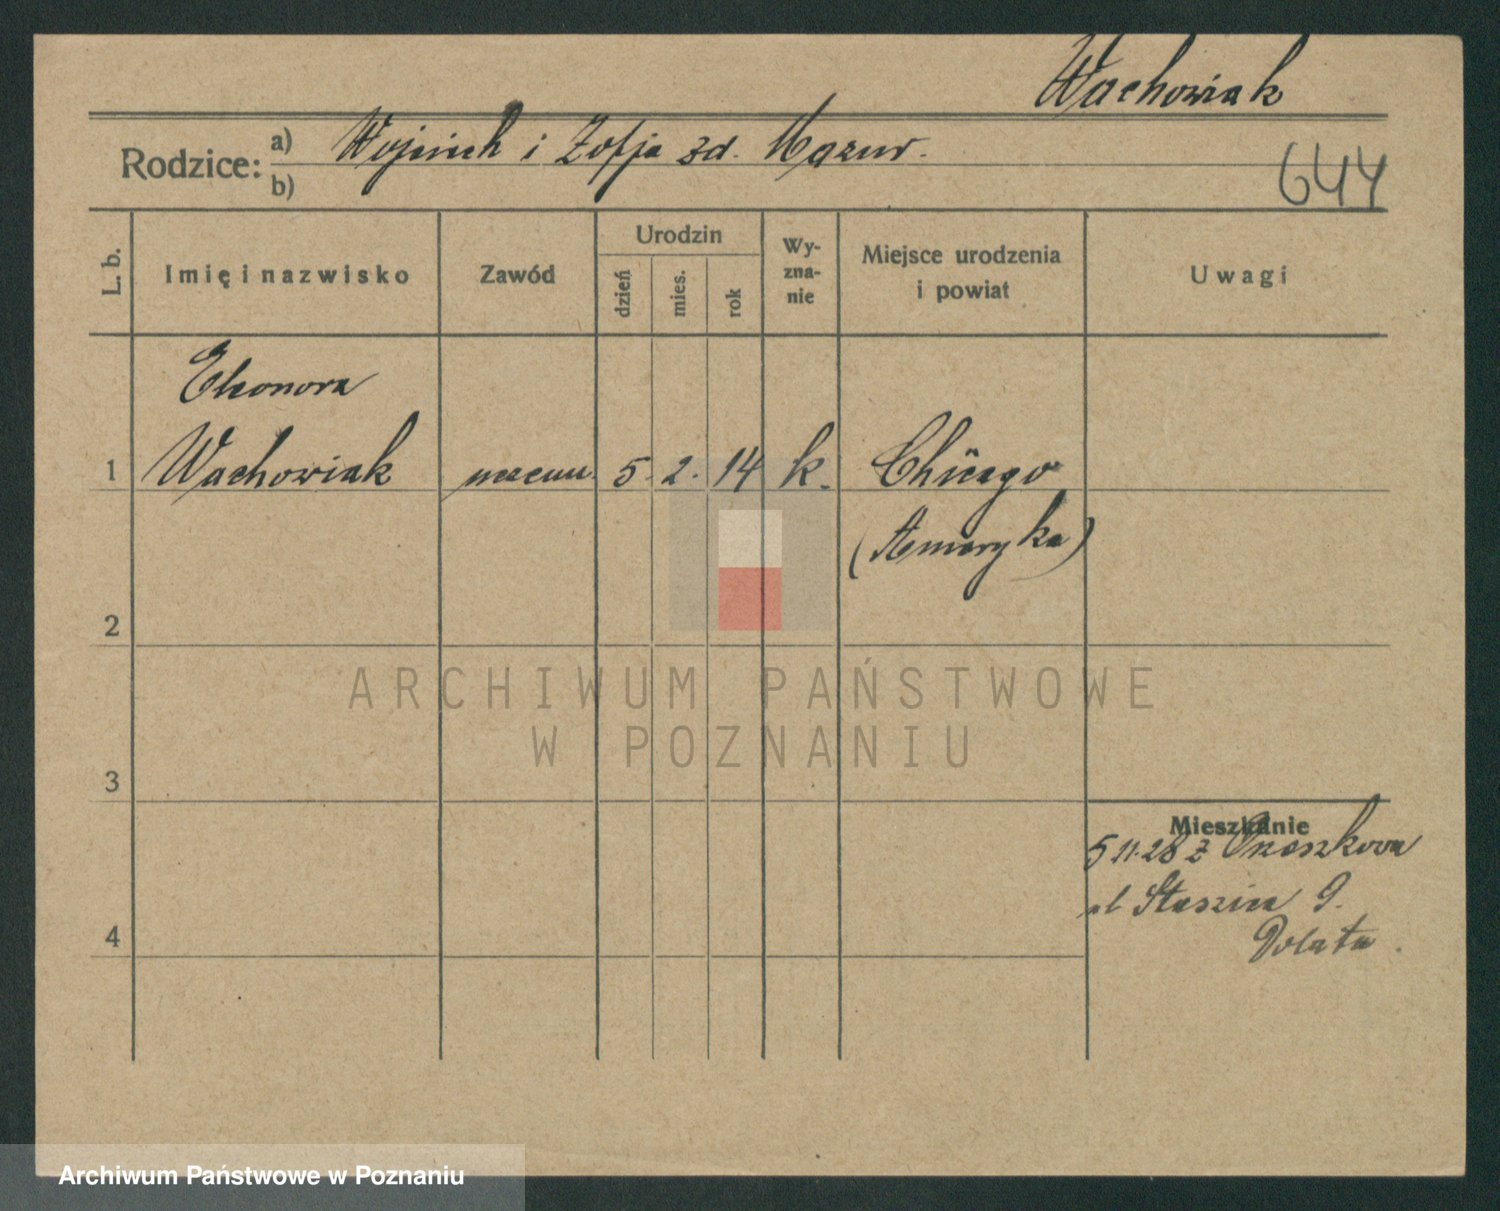 Wachowiak
Rodzice: a) Wojciech i Zofja zd. Mazur.
b)
644
L. b.
Imię i nazwisko
Zawód
Urodzin
dzień
mies.
rok
Wy-
zna-
nie
Miejsce urodzenia
i powiat
Uwagi
Eleonora
1 Wachowiak uczenn. 5. 2. 14 k. Chicago
(Ameryka)
2
3
4
Mieszkanie
5 11.28 z
ul Staszica 9.
Polata.
ARCHIWUM PAŃSTWOWE
W POZNANIU
Archiwum Państwowe w Poznaniu